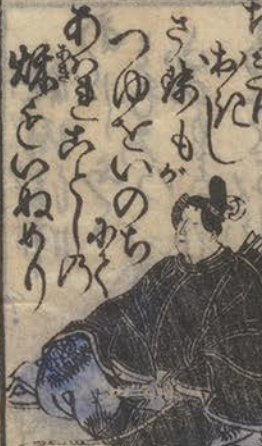 ちぎり
おきし
させもが
つゆをいのち
にて
あはれことしの
秋もいぬめり
あき